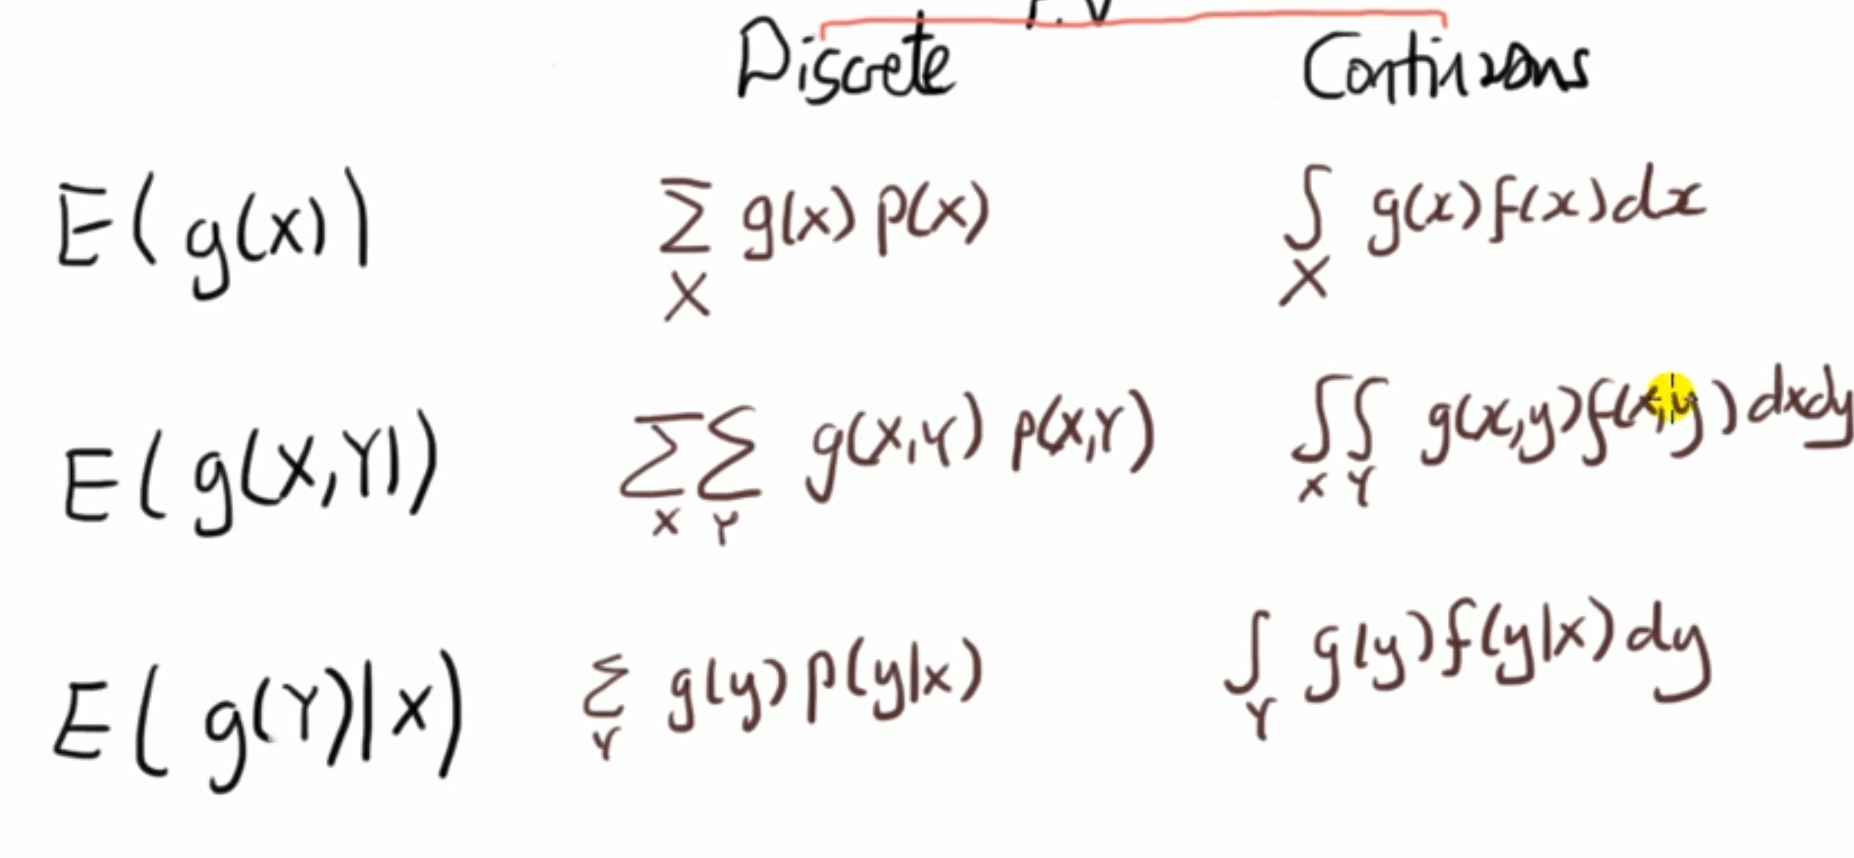 r.v
Discrete Continuous
E(g(x)) Σ_X g(x) p(x) ∫_X g(x)f(x)dx
E(g(X,Y)) Σ_X Σ_Y g(X,Y) p(X,Y) ∫_X ∫_Y g(x,y)f(x,y)dxdy
E(g(Y)|X) Σ_Y g(y) p(y|x) ∫_Y g(y)f(y|x)dy